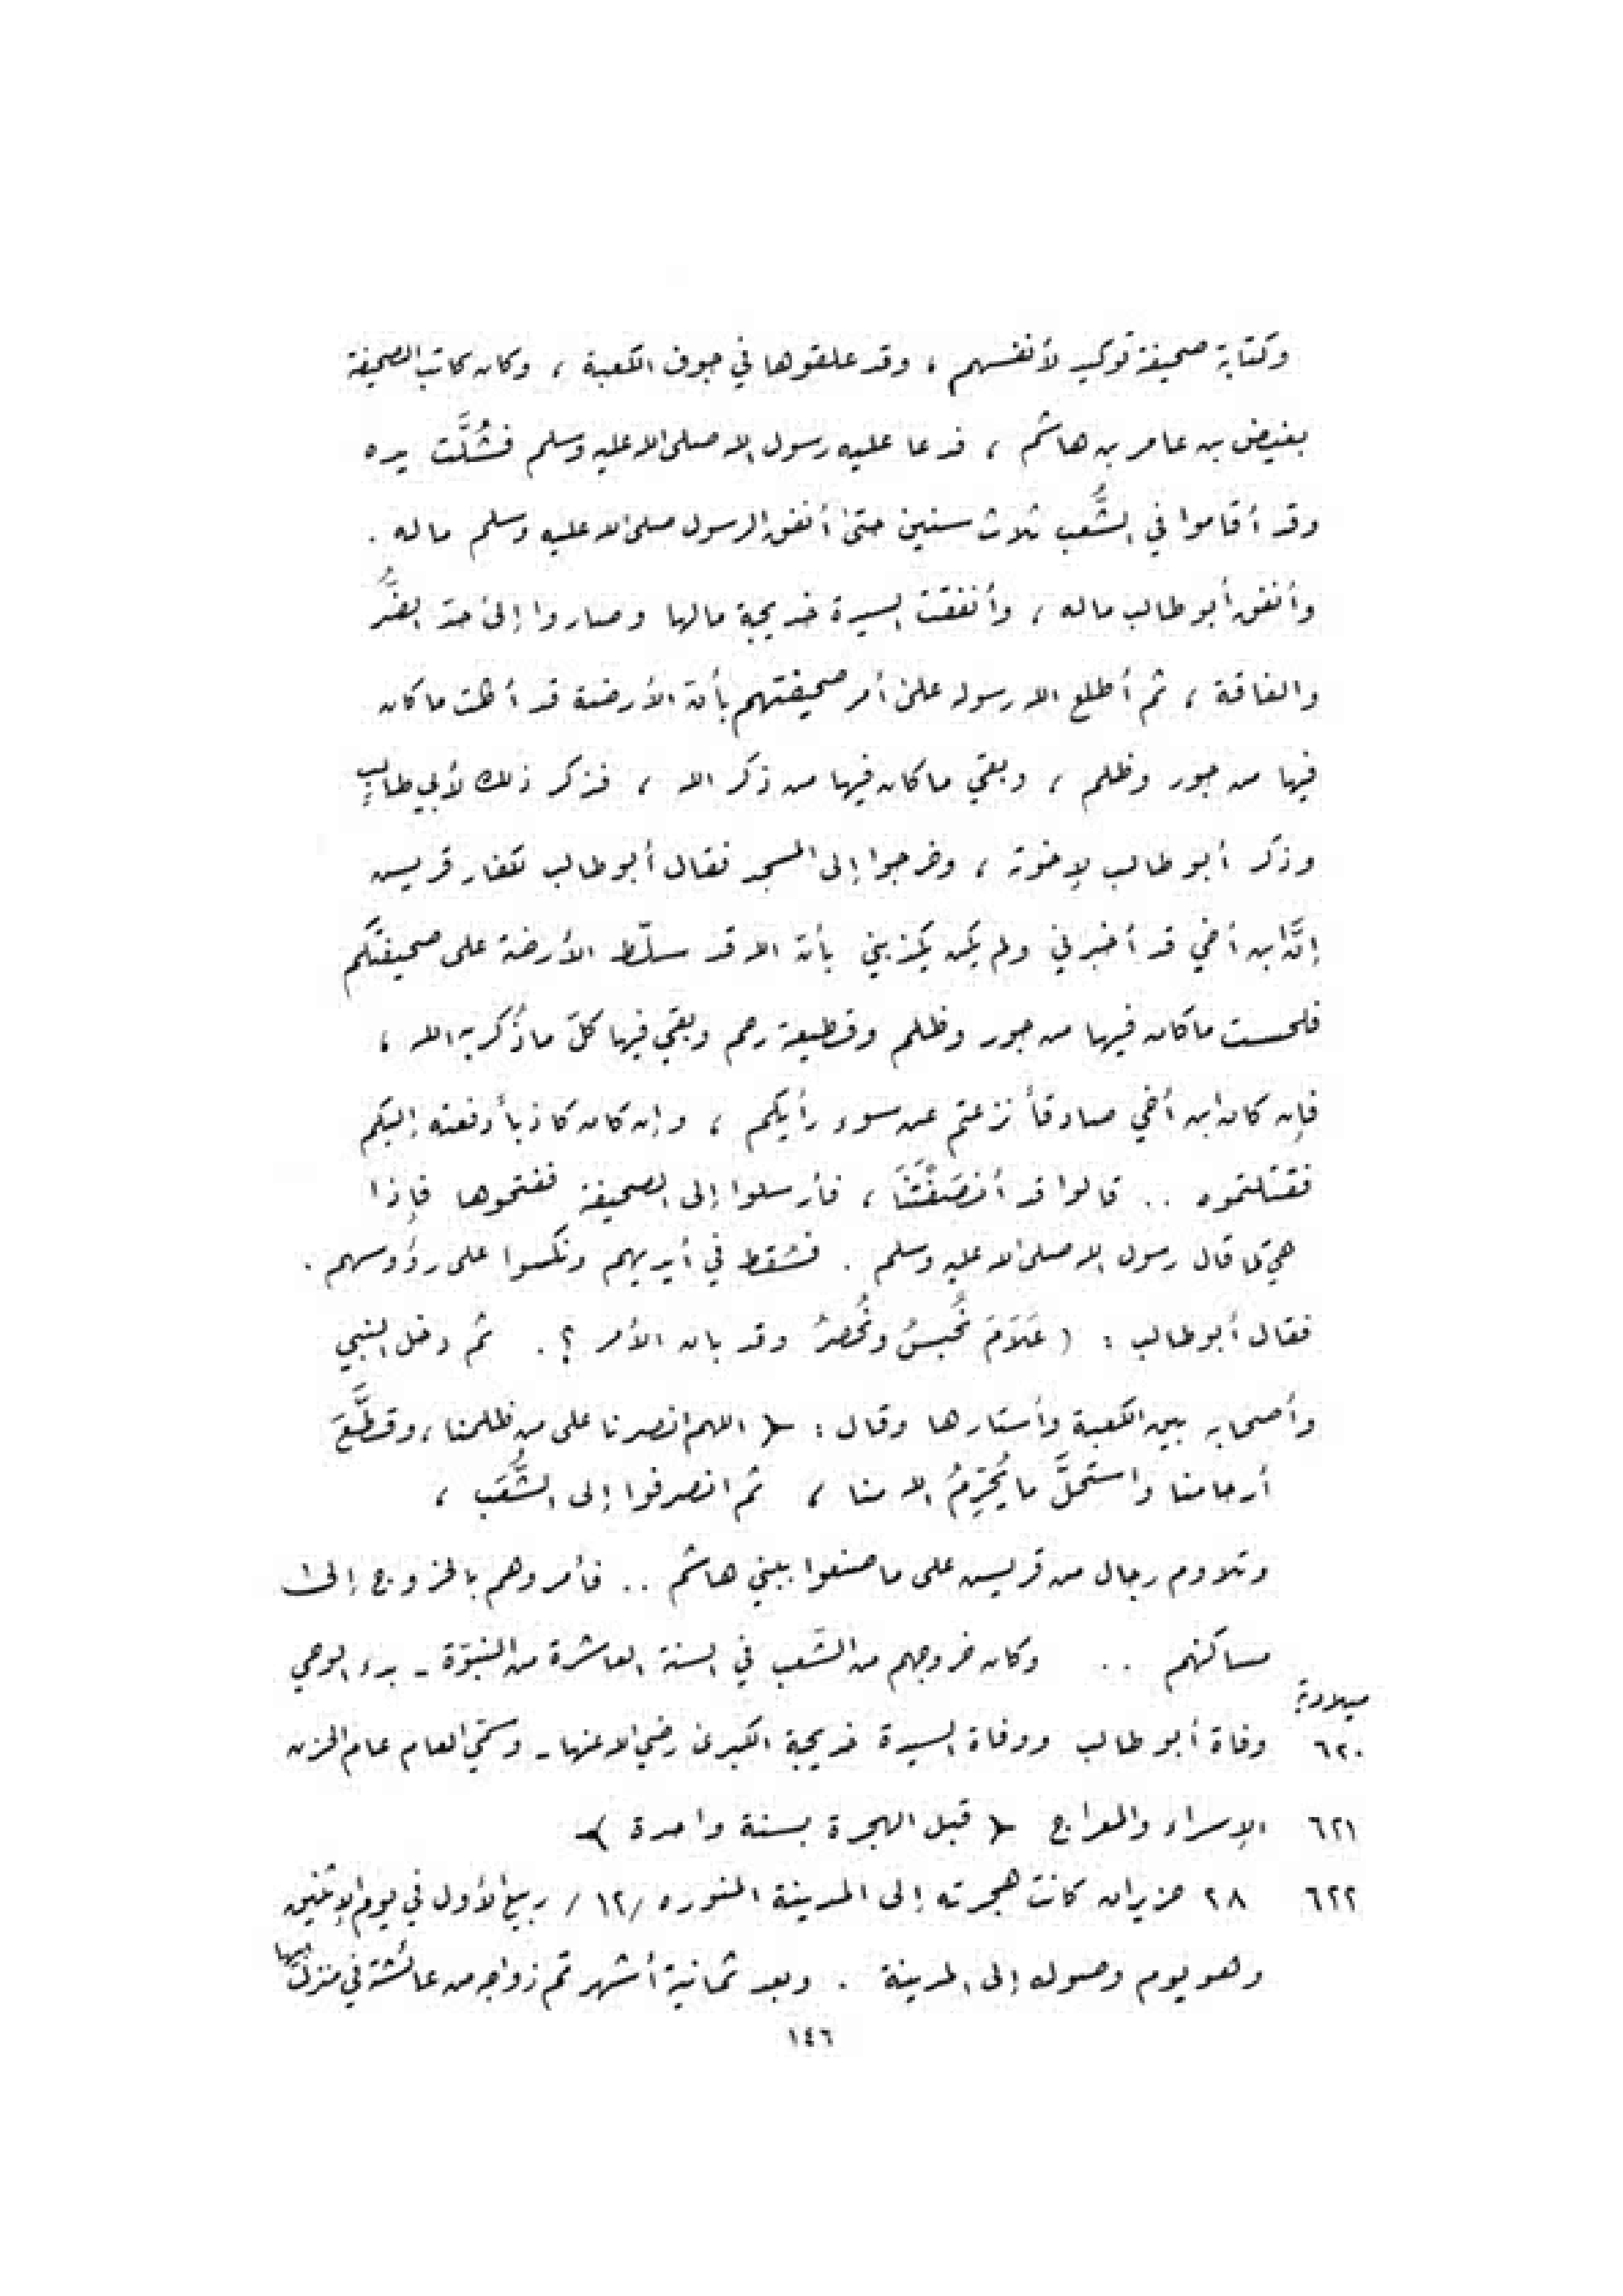 وكتابة صحيفة توكيد لأنفسهم ، وقد علقوها في جوف الكعبة ، وكان كاتب الصحيفة
بغيض بن عامر بن هاشم ، فدعا عليه رسول الله صلى الله عليه وسلم فشُلَّت يده
وقد أقاموا في الشُّعب ثلاث سنين حتى أنفق الرسول صلى الله عليه وسلم ماله .
وأنفق أبو طالب ماله ، وأنفقت السيدة خديجة مالها وصاروا إلى حدّ الضُّر
والفاقة ، ثم أطلع الله رسوله على أمر صحيفتهم بأن الأرضة قد أكلت ما كان
فيها من جور وظلم ، وبقي ما كان فيها من ذكر الله ، فذكر ذلك لأبي طالبٍ
وذكر أبو طالب لإخوته ، وخرجوا إلى المسجد فقال أبو طالب لكفار قريس
إنَّ ابن أخي قد أخبرني ولم يكن يكذبني بأن الله قد سلّط الأرضة على صحيفتكم
فلحست ما كان فيها من جور وظلم وقطيعة رحم وبقي فيها كلّ ما ذُكر به الله ،
فإن كان ابن أخي صادقاً نزعتم عن سوء رأيكم ، وإن كان كاذباً دفعته إليكم
فقتلتموه .. قالوا قد أنصَفْتَنَا ، فأرسلوا إلى الصحيفة ففتحوها فإذا
هي كما قال رسول الله صلى الله عليه وسلم . فسُقط في أيديهم ونكسوا على رؤوسهم .
فقال أبو طالب : ( عَلَامَ نُحبسُ ونُحصرُ وقد بان الأمر ؟ . ثم دخل النبي
وأصحابه بين الكعبة وأستارها وقال : ( اللهم انصرنا على من ظلمنا ، وقطَّعَ
أرحامنا واستحلَّ ما يُحَرِّمُ الله منا ، ثم انصرفوا إلى الشُّعَب ،
وتلاوم رجال من قريس على ما صنعوا ببني هاشم .. فأمروهم بالخروج إلى
مساكنهم .. وكان خروجهم من الشّعب في السنة العاشرة من النبوّة - بدء الوحي
ميلادية
٦٢٠ وفاة أبو طالب ووفاة السيدة خديجة الكبرى رضي الله عنها - وسمّي العام عام الحزن
٦٢١ الإسراء والمعراج ( قبل الهجرة بسنة واحدة )
٦٢٢ ٢٨ حزيران كانت هجرته إلى المدينة المنوره /١٢/ ربيع الأول في يوم الإثنين
وهو يوم وصوله إلى المدينة . وبعد ثمانية أشهر تم زواجه من عائشة في منزل أبيها
١٤٦